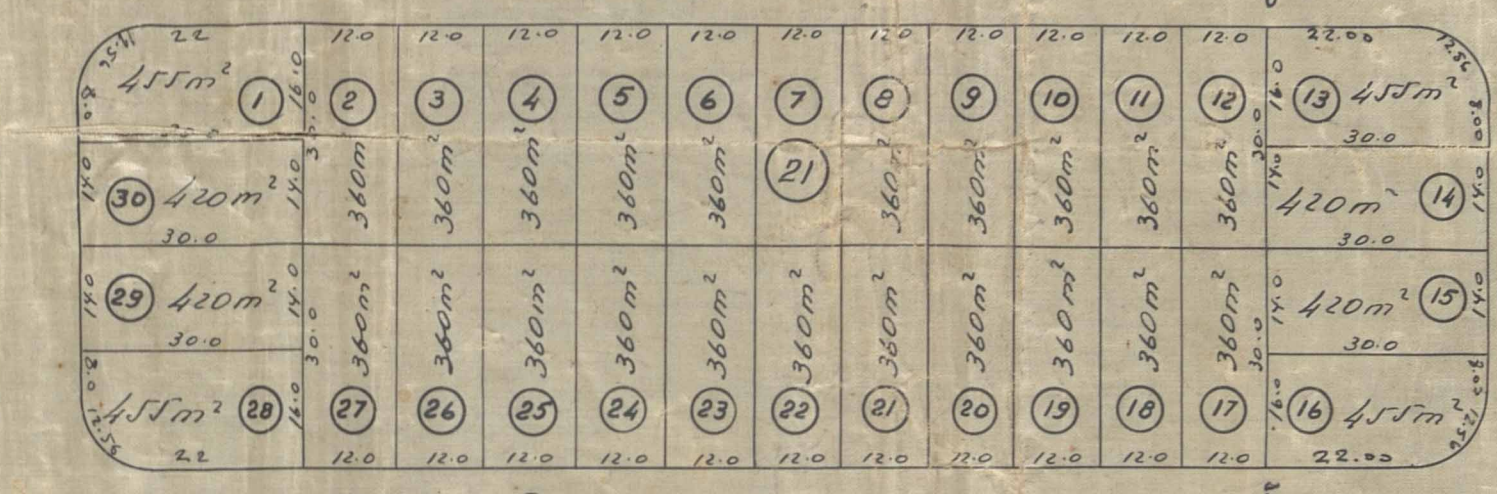 12.56 22 12.0 12.0 12.0 12.0 12.0 12.0 12.0 12.0 12.0 12.0 12.0 22.00 12.56
8.0 455m² 1 16.0 2 3 4 5 6 7 8 9 10 11 12 16.0 13 455m² 8.00
30.0 30.0 30.0
14.0 30 420m² 14.0 360m² 360m² 360m² 360m² 360m² 21 360m² 360m² 360m² 360m² 360m² 14.0 420m² 14 14.0
30.0 30.0
14.0 29 420m² 14.0 360m² 360m² 360m² 360m² 360m² 360m² 360m² 360m² 360m² 360m² 360m² 14.0 420m² 15 14.0
30.0 30.0 30.0 30.0
8.0 455m² 28 16.0 27 26 25 24 23 22 21 20 19 18 17 16. 16 455m² 8.00
12.56 22 12.0 12.0 12.0 12.0 12.0 12.0 12.0 12.0 12.0 12.0 12.0 22.00 12.56